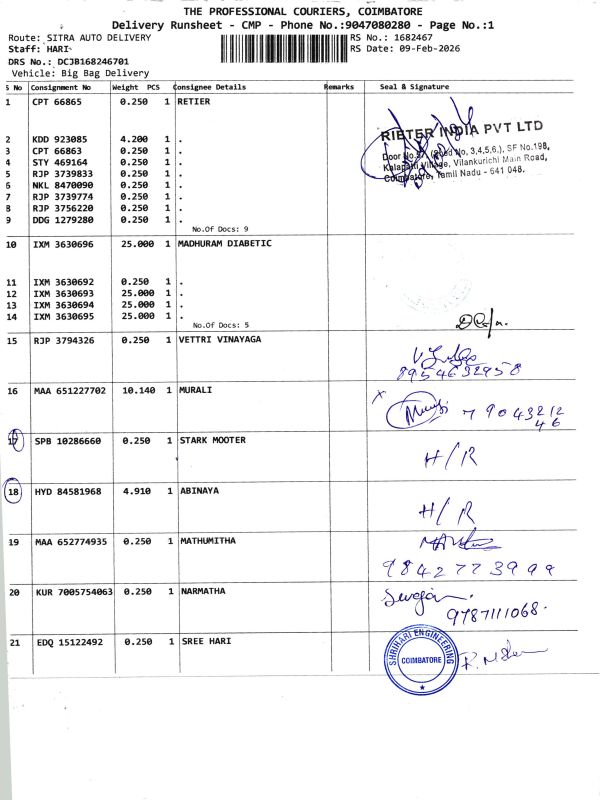 THE PROFESSIONAL COURIERS, COIMBATORE
Delivery Runsheet - CMP - Phone No.:9047080280 - Page No.:1
Route: SITRA AUTO DELIVERY
RS No.: 1682467
Staff: HARI
RS Date: 09-Feb-2026
DRS No.: DCJB168246701
Vehicle: Big Bag Delivery
S No Consignment No Weight PCS Consignee Details Remarks Seal & Signature
1 CPT 66865 0.250 1 RETIER
2 KDD 923085 4.200 1 .
3 CPT 66863 0.250 1 .
4 STY 469164 0.250 1 .
5 RJP 3739833 0.250 1 .
6 NKL 8470090 0.250 1 .
7 RJP 3739774 0.250 1 .
8 RJP 3756220 0.250 1 .
9 DDG 1279280 0.250 1 .
No.Of Docs: 9
RIETER INDIA PVT LTD
Door No. (Shed No, 3,4,5,6,), SF No.198,
Kalapatti Village, Vilankurichi Main Road,
Coimbatore, Tamil Nadu - 641 048.
10 IXM 3630696 25.000 1 MADHURAM DIABETIC
11 IXM 3630692 0.250 1 .
12 IXM 3630693 25.000 1 .
13 IXM 3630694 25.000 1 .
14 IXM 3630695 25.000 1 .
No.Of Docs: 5
15 RJP 3794326 0.250 1 VETTRI VINAYAGA
8954632958
16 MAA 651227702 10.140 1 MURALI
x 7904321246
17 SPB 10286660 0.250 1 STARK MOOTER
H/R
18 HYD 84581968 4.910 1 ABINAYA
H/R
19 MAA 652774935 0.250 1 MATHUMITHA
9842773999
20 KUR 7005754063 0.250 1 NARMATHA
9787111068.
21 EDQ 15122492 0.250 1 SREE HARI
SHRIHARI ENGINEERING
COIMBATORE